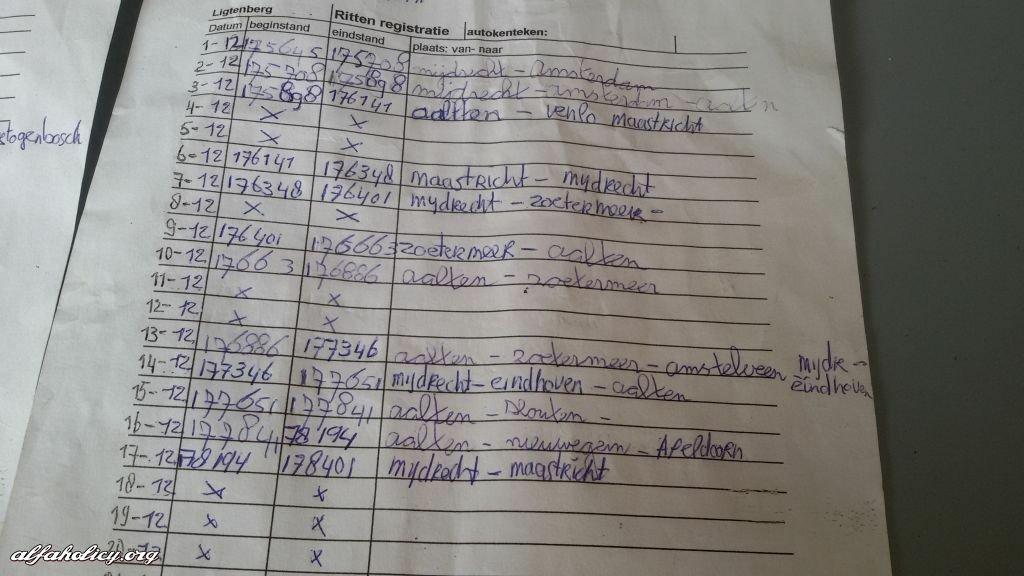 etogenbosch
Ligtenberg Ritten registratie autokenteken:
Datum beginstand eindstand plaats: van- naar
1-12 175645 175708 mijdrecht - amsterdam
2-12 175708 175898 mijdrecht - amsterdam - aalten
3-12 175898 176141 aaltten - venlo maastricht
4-12 x x
5-12 x
6-12 176141 176348 maastricht - mydrecht
7-12 176348 176401 mydrecht - zoetermeer -
8-12 x x
9-12 176401 176663 zoetermeer - aalten
10-12 176663 176886 aalten - zoetermeer
11-12 x x
12-12 x x
13-12 176886 177346 aalten - zoetermeer - amstelveen mydre - eindhoven
14-12 177346 177651 mydrecht - eindhoven - aalten
15-12 177651 177841 aalten - Houten -
16-12 177841 178194 aalten - nieuwegein - Apeldoorn
17-12 178194 178401 mydrecht - maastricht
18-12 x x
19-12 x x
x x
alfaholicy.org